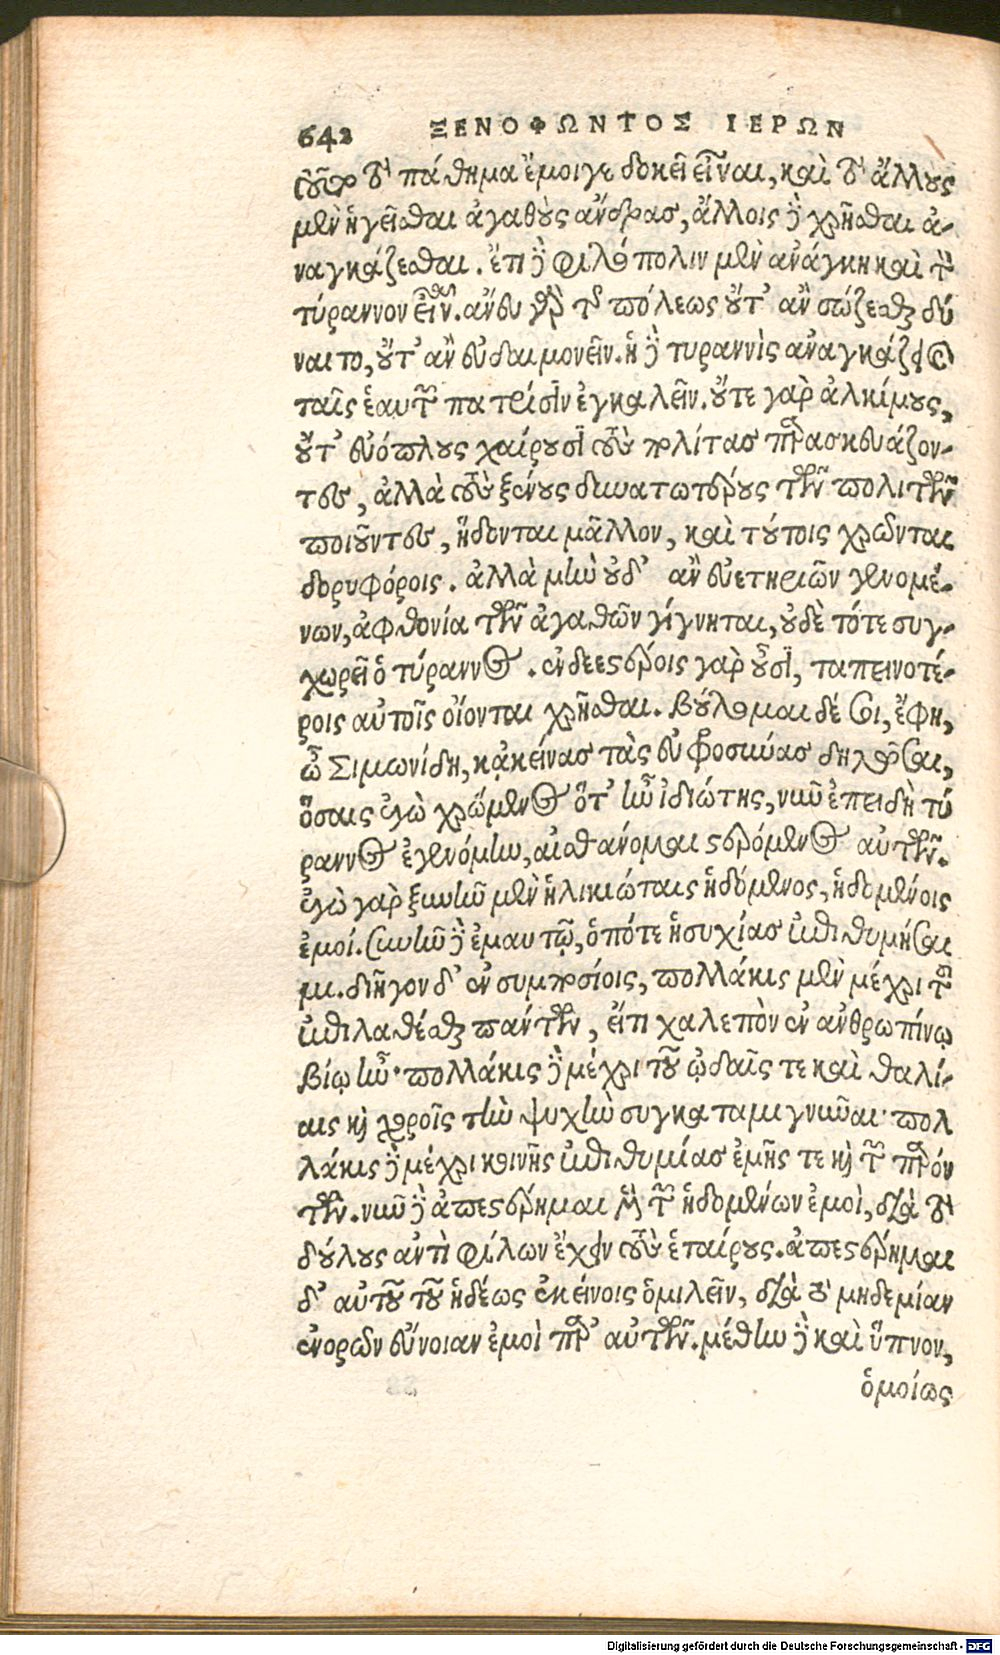 642 ΞΕΝΟΦΩΝΤΟΣ ΙΕΡΩΝ
οὖν τὸ πάθημα ἔμοιγε δοκεῖ εἶναι, καὶ τὸ ἄλλους
μὲν ἡγεῖσθαι ἀγαθοὺς ἄνδρας, ἄλλοις δὲ χρῆσθαι ἀ-
ναγκάζεσθαι. ἔτι δὲ φιλόπολιν μὲν ἀνάγκη καὶ τὸν
τύραννον εἶναι. ἄνευ γὰρ τῆς πόλεως οὔτ' ἂν σώζεσθαι δύ
ναιτο, οὔτ' ἂν εὐδαιμονεῖν. ἡ δὲ τυραννὶς ἀναγκάζει καὶ
ταῖς ἑαυτῶν πατρίσιν ἐγκαλεῖν. οὔτε γὰρ ἀλκίμους,
οὔτ' εὐόπλους χαίρουσι τοὺς πολίτας παρασκευάζον-
τες, ἀλλὰ τοὺς ξένους δυνατωτέρους τῶν πολιτῶν
ποιοῦντες, ἥδονται μᾶλλον, καὶ τούτοις χρῶνται
δορυφόροις. ἀλλὰ μὴν οὐδ' ἂν εὐετηριῶν γενομέ-
νων, ἀφθονία τῶν ἀγαθῶν γίγνηται, οὐδὲ τότε συγ-
χωρεῖ ὁ τύραννος. ἐνδεεστέροις γὰρ οὖσι, ταπεινοτέ-
ροις αὐτοῖς οἴονται χρῆσθαι. βούλομαι δέ σοι, ἔφη,
ὦ Σιμωνίδη, κἀκείνας τὰς εὐφροσύνας δηλῶσαι,
ὅσαις ἐγὼ χρώμενος ὅτ' ἦν ἰδιώτης, νῦν ἐπειδὴ τύ
ραννος ἐγενόμην, αἰσθάνομαι στερόμενος αὐτῶν.
ἐγὼ γὰρ ξυνῆν μὲν ἡλικιώταις ἡδόμενος, ἡδομένοις
ἐμοί. συνῆν δὲ ἐμαυτῷ, ὁπότε ἡσυχίας ἐπιθυμήσαι
μι. διῆγον δ' ἐν συμποσίοις, πολλάκις μὲν μέχρι τοῦ
ἐπιλαθέσθαι πάντων, εἴ τι χαλεπὸν ἐν ἀνθρωπίνῳ
βίῳ ἦν· πολλάκις δὲ μέχρι τοῦ ᾠδαῖς τε καὶ θαλί-
αις καὶ χοροῖς τὴν ψυχὴν συγκαταμιγνῦναι· πολ
λάκις δὲ μέχρι κοινῆς ἐπιθυμίας ἐμῆς τε καὶ τῶν παρόν
των. νῦν δὲ ἀπεστέρημαι μὲν τῶν ἡδομένων ἐμοὶ, διὰ τὸ
δούλους ἀντὶ φίλων ἔχειν τοὺς ἑταίρους. ἀπεστέρημαι
δ' αὐτοῦ τοῦ ἡδέως ἐκείνοις ὁμιλεῖν, διὰ τὸ μηδεμίαν
ἐνορῶν εὔνοιαν ἐμοὶ παρ' αὐτῶν. μέθην δὲ καὶ ὕπνον,
ὁμοίως
Digitalisierung gefördert durch die Deutsche Forschungsgemeinschaft - DFG